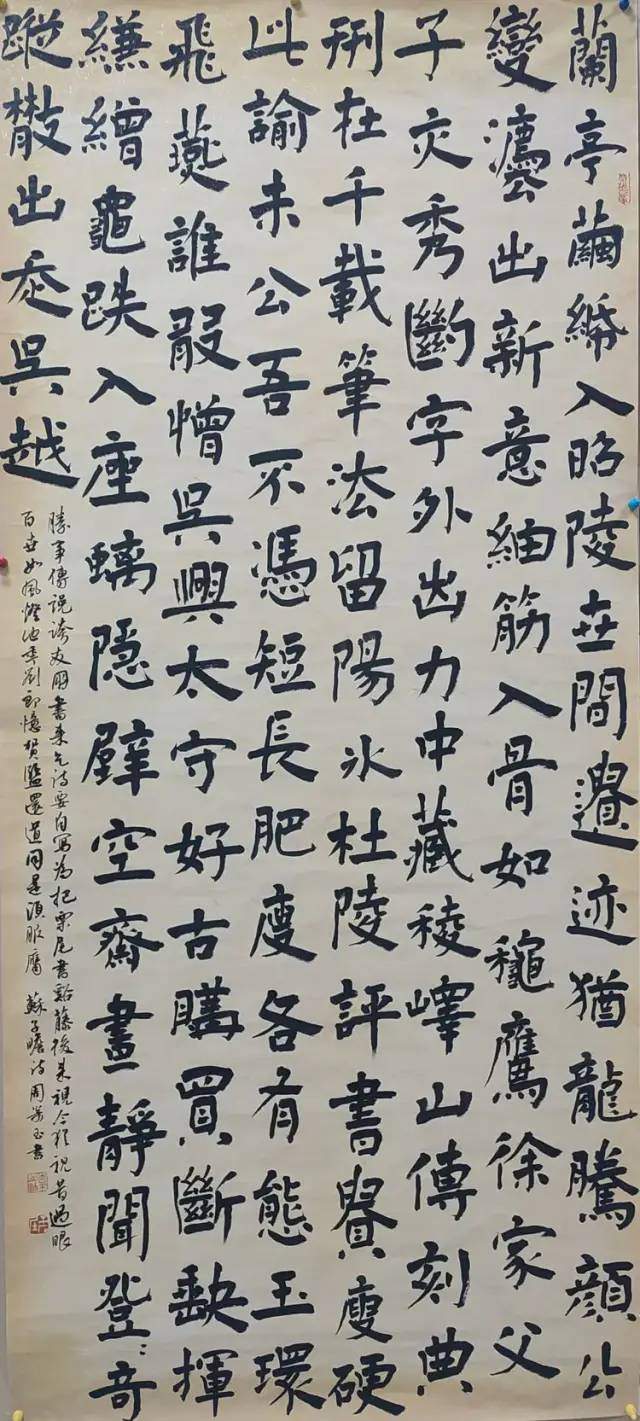 蘭亭繭紙入昭陵世間遺迹猶龍騰顏公
變灋出新意細筋入骨如龝鷹徐家父
子亦秀絕字外出力中藏稜嶧山傳刻典
刑在千載筆法留陽冰杜陵評書貴瘦硬
此論未公吾不憑短長肥瘦各有態玉環
飛燕誰敢憎吳興太守好古購買斷缺揮
縑繒龜趺入座螭隱壁空齋晝靜聞登〻奇
蹤散出走吳越
勝事傳說誇友朋書來乞詩要自寫為把栗尾書谿藤後來視今猶視昔過眼
百世如風燈他年劉郎憶賀監還道同是須服膺 蘇子瞻詩周書